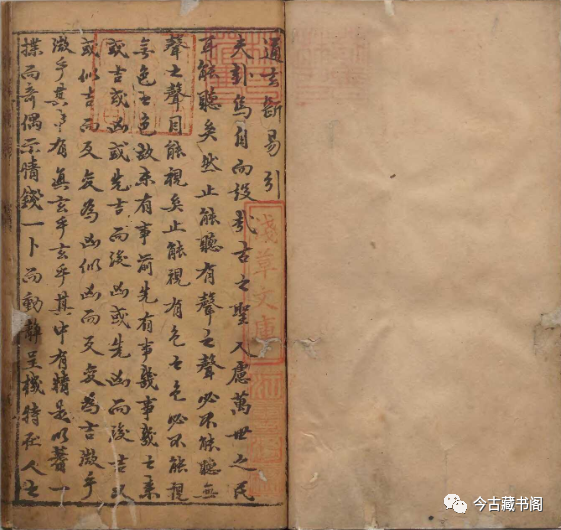 通玄斷易引
夫卦爲自而設哉古之聖人慮萬世之民
耳能聽矣然止能聽有聲之聲必不能聽無
聲之聲目能視矣止能視有色之色必不能視
無色之色故未有事前先有事幾事幾之來
或吉或凶或先吉而後凶或先凶而後吉又
或似吉而反變為凶似凶而反變為吉微乎
微乎其中有眞玄乎玄乎其中有精是以蓍一
揲而奇偶示情錢一卜而動靜呈機特在人之
淺草文庫
今古藏书阁